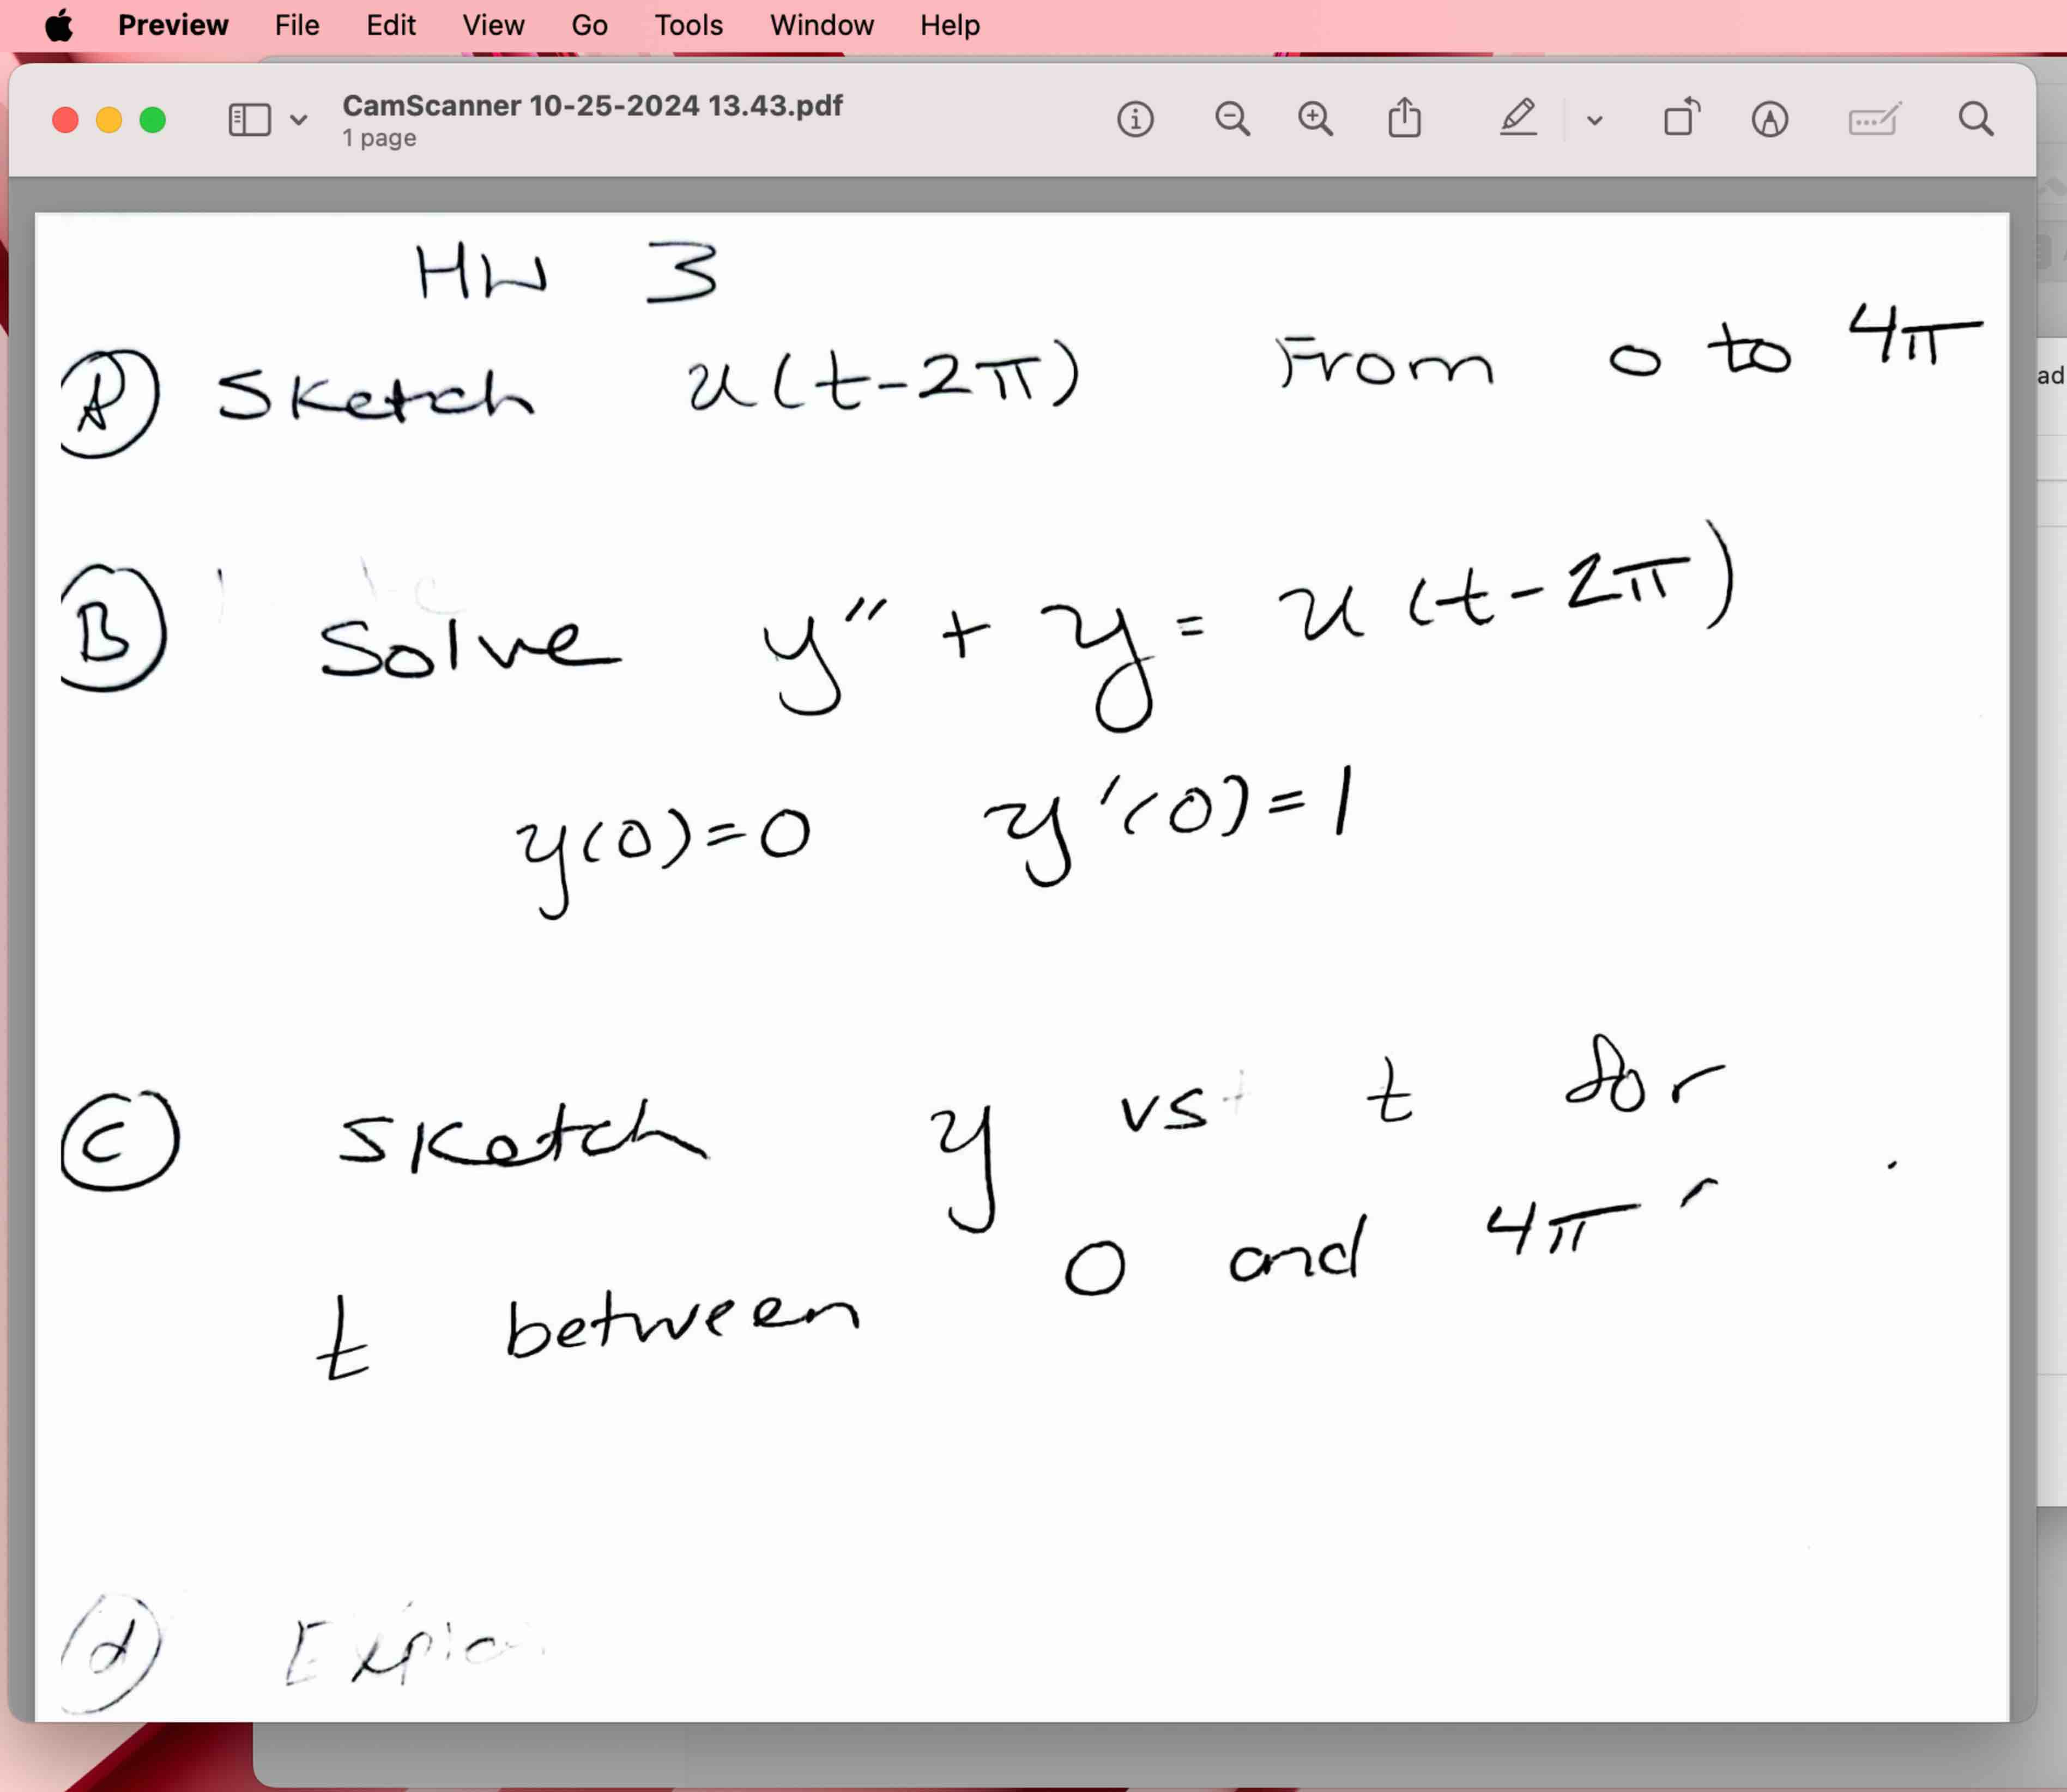 Preview File Edit View Go Tools Window Help
CamScanner 10-25-2024 13.43.pdf
1 page
HW 3
(A) Sketch u(t-2π) From 0 to 4π
ad
(B) Solve y'' + y = u(t-2π)
y(0)=0 y'(0)=1
(C) Sketch y vs t for
t between 0 and 4π
(d)